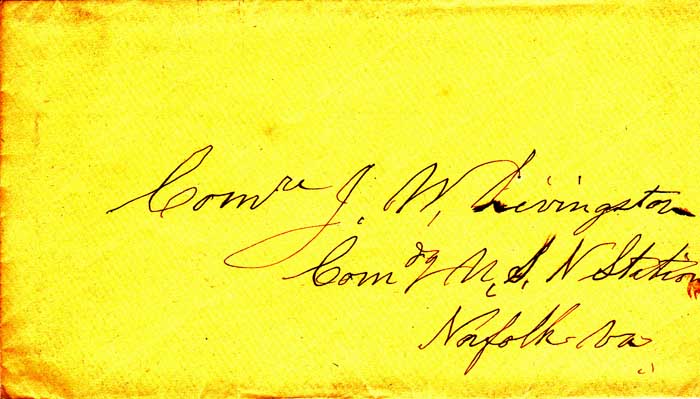 Comre J. W. Livingston
Comdg U.S. N Station
Norfolk Va